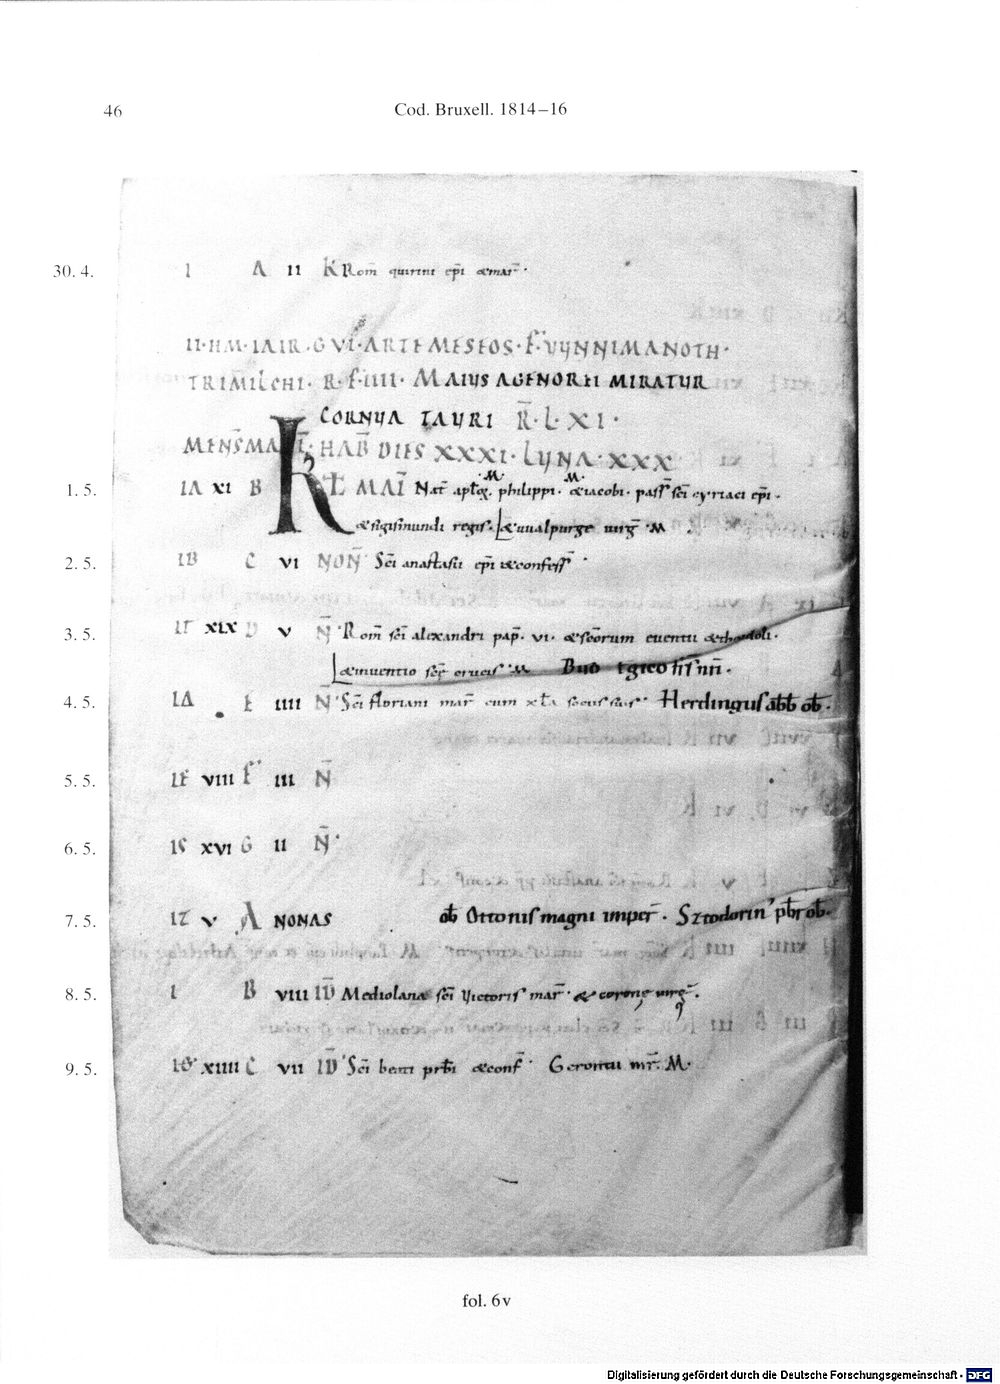 46
Cod. Bruxell. 1814–16
30. 4. I A II K Rom̄ quirini ep̄i &mar̄.
II·HM·IAIR·GVI·ARTEMESEOS·F·VYNNIMANOTH·
TRIMILCHI· R·F·IIII· MAIUS AGENORII MIRATUR
CORNUA TAURI R̄·L·XI·
MENS̄ MAI· HAB̄ DIES XXXI·LUNA·XXX
1. 5. IA XI B KL̄ MAĪ Nat̄ philippi· &iacobi· pass̄ sc̄i cyriaci ep̄i·
&sigismundi regis· &uualpurge uirḡ ·M
2. 5. IB C VI NON̄ Sc̄i anastasii ep̄i &confess̄
3. 5. XIX D V N̄ Rom̄ sc̄i alexandri pap̄· vi· &sc̄orum euentii &theodoli·
&inuentio sc̄e crucis ·M Buo
4. 5. IΔ E IIII N̄ Sc̄i floriani mar̄ cum Herdingus abb̄ ob̄·
5. 5. IE VIII F III N̄
6. 5. XVI G II N̄
7. 5. IZ V A NONAS ob̄ Ottonis magni imper̄· Sztodorin' pb̄r ob̄·
8. 5. I B VIII ID̄ Mediolana sc̄i Victoris mar̄· & corone uirḡ·
9. 5. XIIII C VII ID̄ Sc̄i beati prb̄i &conf̄· Gerontii mr̄· M·
fol. 6v
Digitalisierung gefördert durch die Deutsche Forschungsgemeinschaft - DFG